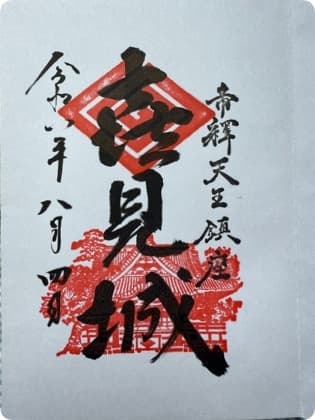 帝釋天王鎮座
喜見城
令和六年八月四日